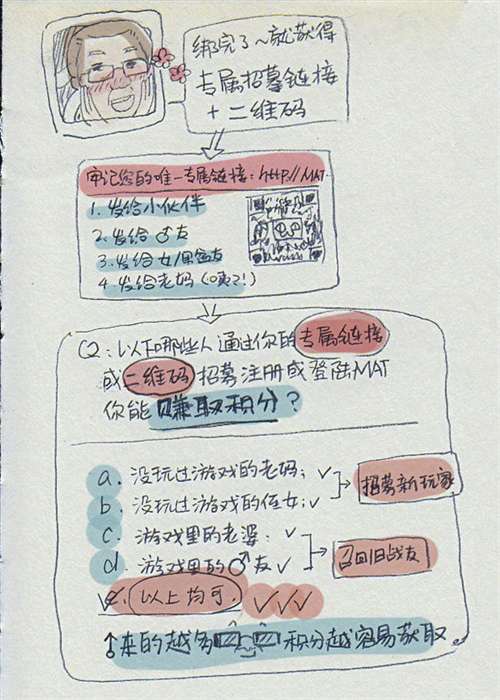 绑完了~就获得
专属招募链接
+ 二维码
牢记您的唯一专属链接：HTTP//MAT
1. 发给小伙伴
2. 发给♂友
3. 发给女/男盆友
4. 发给老妈（咦？!）
Q2：以下哪些人通过你的专属链接
或二维码招募注册或登陆MAT
你能赚取积分？
a. 没玩过游戏的老妈；✓
b. 没玩过游戏的侄女；✓
招募新玩家
c. 游戏里的老婆：✓
d. 游戏里的♂友✓
召回旧战友
e. 以上均可. ✓✓✓
来的越多 积分越容易获取